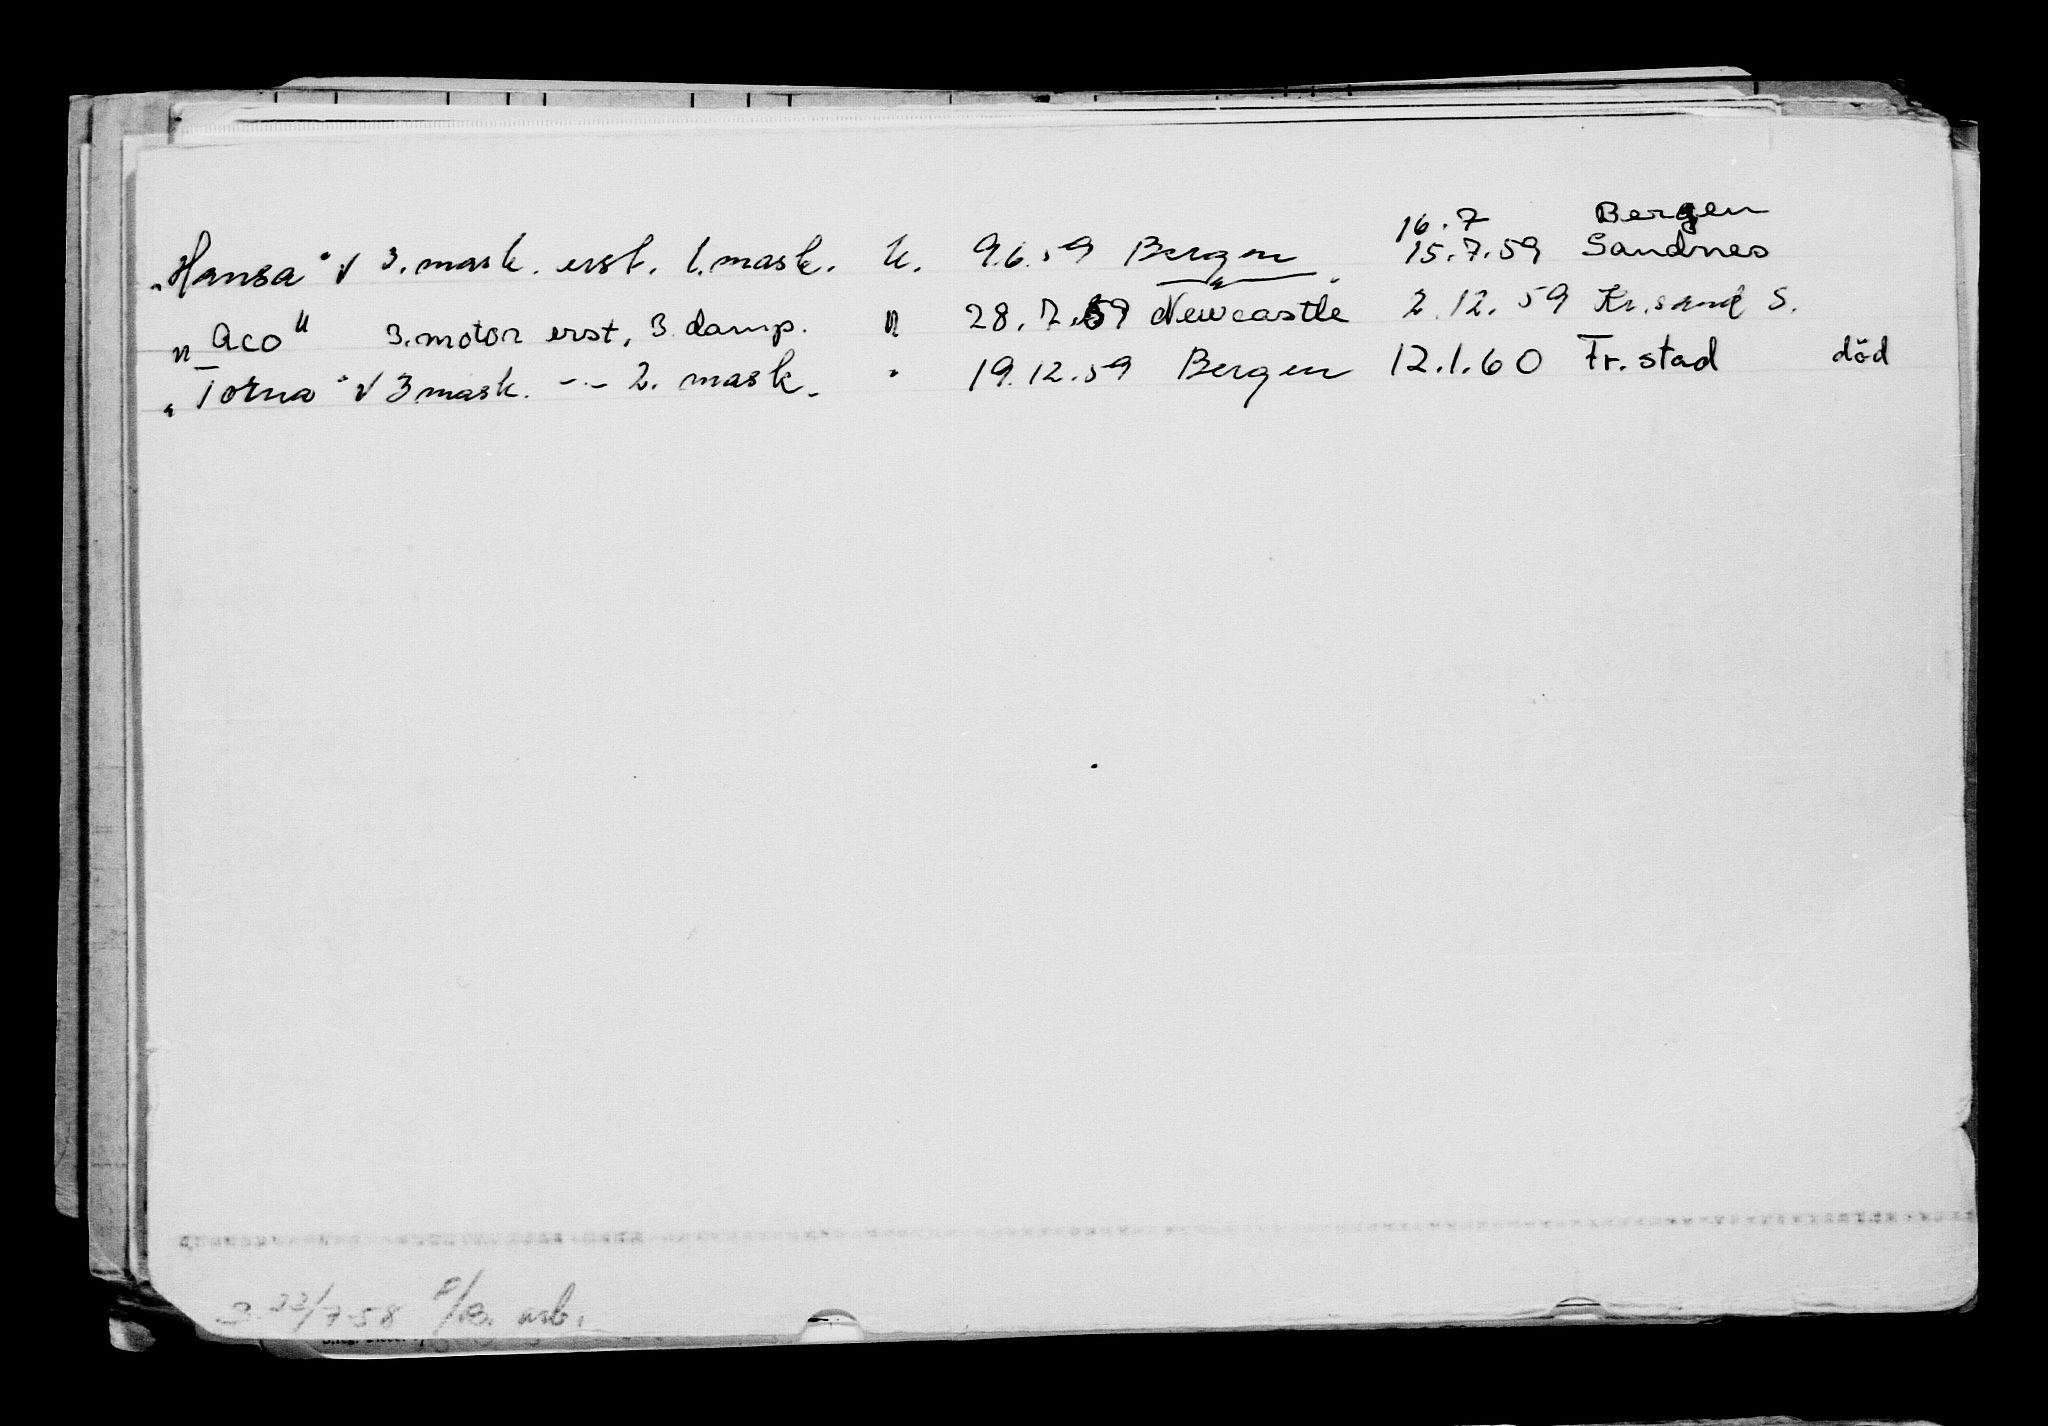 16.7 Bergen
"Hansa" v 3. mask. erst. 1. mask. U. 9.6.59 Bergen 15.7.59 Sandnes
"Aco" 3. motor erst, 3. damp. " 28.7.59 Newcastle 2.12.59 Kr.sand S.
"Torna" v 3 mask. -"- 2. mask. " 19.12.59 Bergen 12.1.60 Fr.stad död
3. 22/7-58 arb.